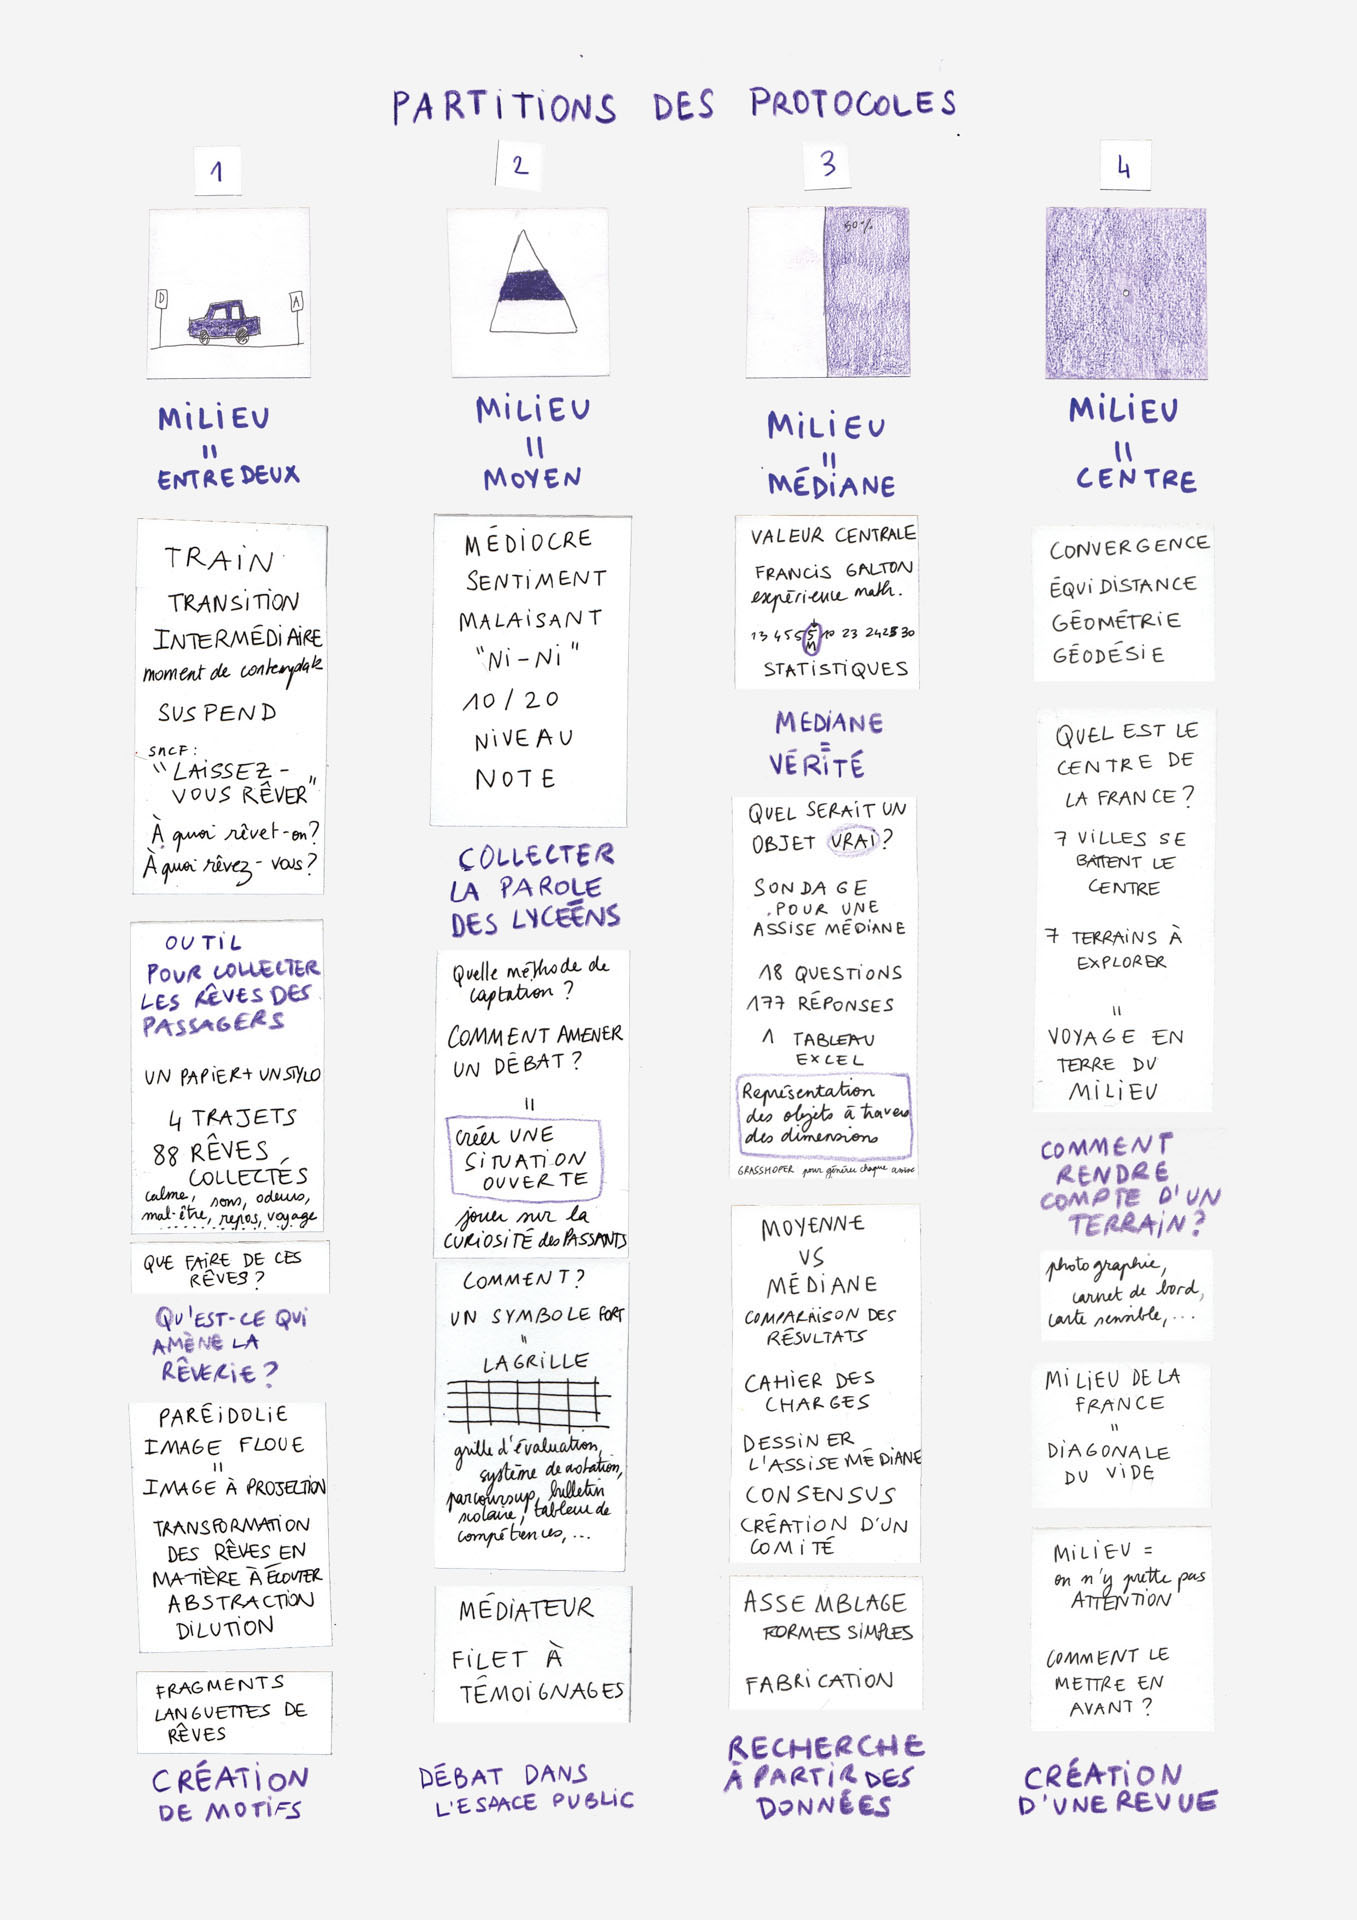 PARTITIONS DES PROTOCOLES
1
D
A
MILIEU
=
ENTRE DEUX
TRAIN
TRANSITION
INTERMÉDIAIRE
moment de
SUSPEND
SNCF :
"LAISSEZ-
VOUS RÊVER"
À quoi rêvet-on?
À quoi rêvez-vous?
OUTIL
POUR COLLECTER
LES RÊVES DES
PASSAGERS
UN PAPIER + UN STYLO
4 TRAJETS
88 RÊVES
COLLECTÉS
calme, sons, odeurs,
mal-être, repos, voyage
QUE FAIRE DE CES
RÊVES?
QU'EST-CE QUI
AMÈNE LA
RÊVERIE?
PARÉIDOLIE
IMAGE FLOUE
=
IMAGE À PROJECTION
TRANSFORMATION
DES RÊVES EN
MATIÈRE À ÉCOUTER
ABSTRACTION
DILUTION
FRAGMENTS
LANGUETTES DE
RÊVES
CRÉATION
DE MOTIFS
2
MILIEU
=
MOYEN
MÉDIOCRE
SENTIMENT
MALAISANT
"NI-NI"
10/20
NIVEAU
NOTE
COLLECTER
LA PAROLE
DES LYCÉENS
Quelle méthode de
captation?
COMMENT AMENER
UN DÉBAT?
=
créer UNE
SITUATION
OUVERTE
jouer sur la
CURIOSITÉ des PASSANTS
COMMENT?
UN SYMBOLE FORT
=
LA GRILLE
grille d'évaluation,
système de notation,
parcoursup, bulletin
scolaire, tableau de
compétences,...
MÉDIATEUR
FILET À
TÉMOIGNAGES
DÉBAT DANS
L'ESPACE PUBLIC
3
50%
MILIEU
=
MÉDIANE
VALEUR CENTRALE
FRANCIS GALTON
expérience math.
13 4 5 5 5 10 23 24 25 30
M
STATISTIQUES
MEDIANE
=
VÉRITÉ
QUEL SERAIT UN
OBJET VRAI?
SONDAGE
POUR UNE
ASSISE MÉDIANE
18 QUESTIONS
177 RÉPONSES
1 TABLEAU
EXCEL
Représentation
des objets à travers
des dimensions
GRASSHOPER pour générer chaque assise
MOYENNE
VS
MÉDIANE
COMPARAISON DES
RÉSULTATS
CAHIER DES
CHARGES
DESSINER
L'ASSISE MÉDIANE
CONSENSUS
CRÉATION D'UN
COMITÉ
ASSEMBLAGE
FORMES SIMPLES
FABRICATION
RECHERCHE
À PARTIR DES
DONNÉES
4
MILIEU
=
CENTRE
CONVERGENCE
ÉQUIDISTANCE
GÉOMÉTRIE
GÉODÉSIE
QUEL EST LE
CENTRE DE
LA FRANCE?
7 VILLES SE
BATTENT LE
CENTRE
7 TERRAINS À
EXPLORER
=
VOYAGE EN
TERRE DU
MILIEU
COMMENT
RENDRE
COMPTE D'UN
TERRAIN?
photographie,
carnet de bord,
carte sensible,...
MILIEU DE LA
FRANCE
=
DIAGONALE
DU VIDE
MILIEU =
on n'y prette pas
ATTENTION
COMMENT LE
METTRE EN
AVANT?
CRÉATION
D'UNE REVUE